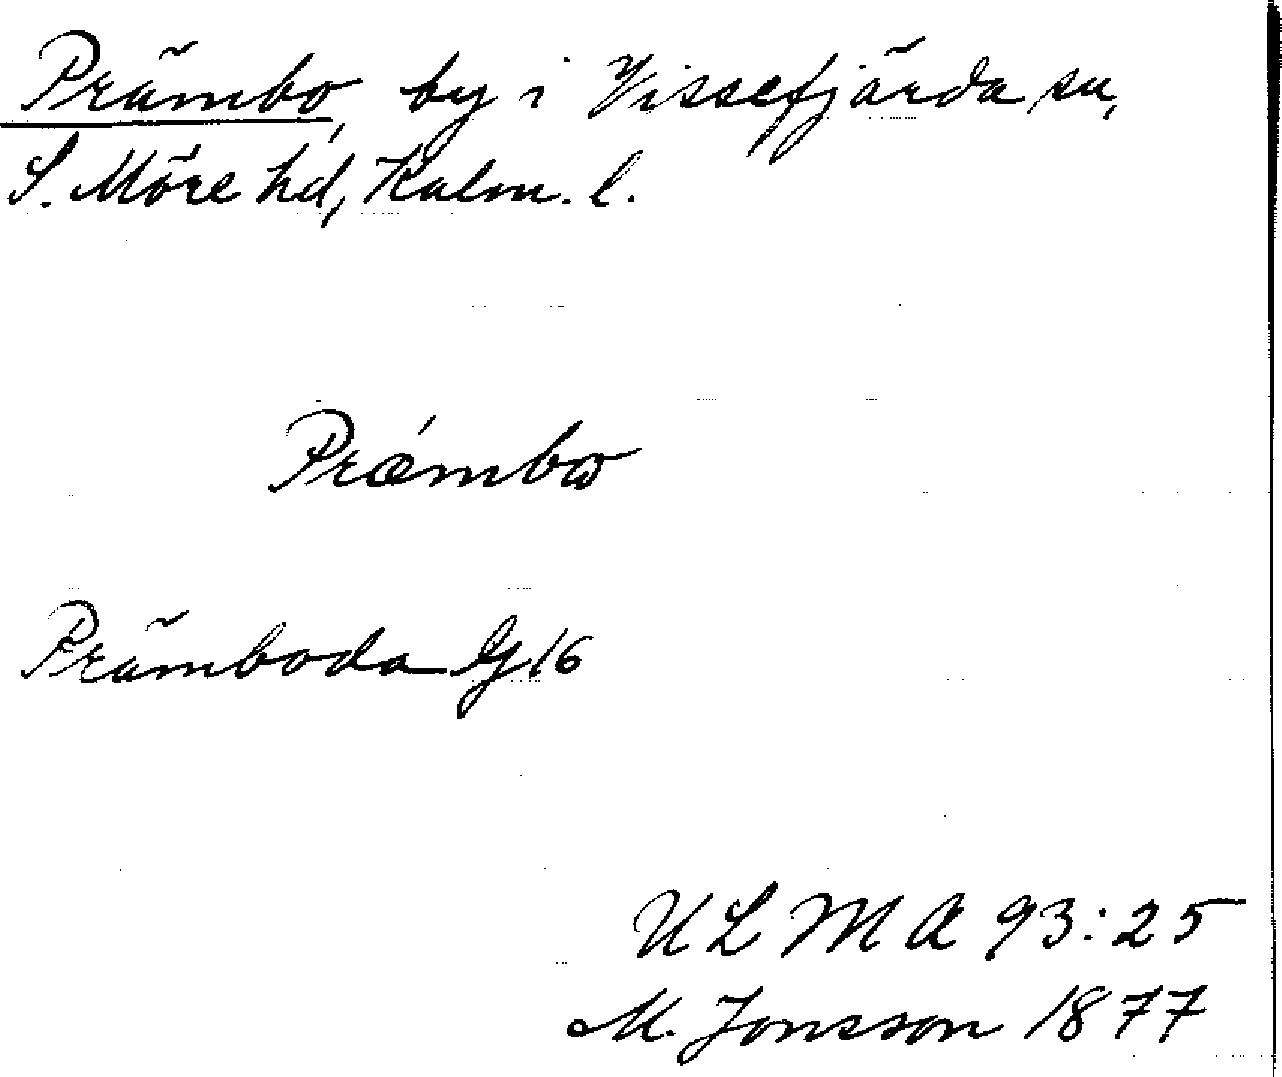 Prämbo, by i Vissefjärda sn,
S. Möre hd, Kalm. l.
Prǽmbω
Prämboda G 16
ULMA 93:25
M. Jonsson 1877